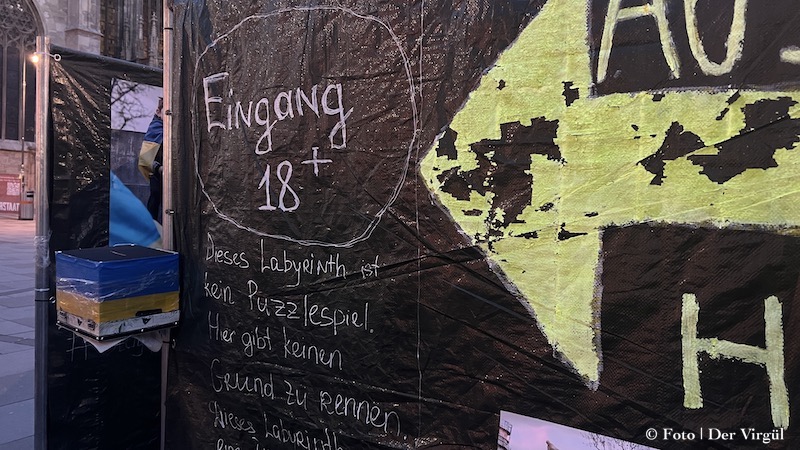 Eingang
18+
Dieses Labyrinth ist
kein Puzzlespiel.
Hier gibt keinen
Grund zu rennen.
Dieses Labyrinth
AU
H
STAAT
© Foto | Der Virgül